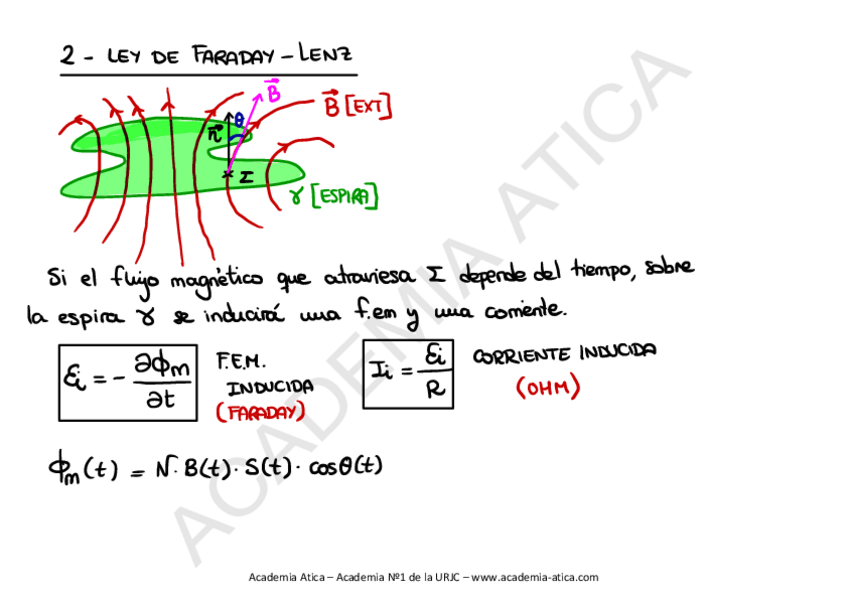 2 - LEY DE FARADAY - LENZ
B
θ
B [EXT]
n
Σ
γ [ESPIRA]
Si el flujo magnético que atraviesa Σ depende del tiempo, sobre
la espira γ se inducirá una f.em y una corriente.
εi = - ∂ϕm / ∂t
F.E.M.
INDUCIDA
(FARADAY)
Ii = εi / R
CORRIENTE INDUCIDA
(OHM)
ϕm (t) = N · B(t) · S(t) · cosθ(t)
ACADEMIA ATICA
Academia Atica – Academia Nº1 de la URJC – www.academia-atica.com